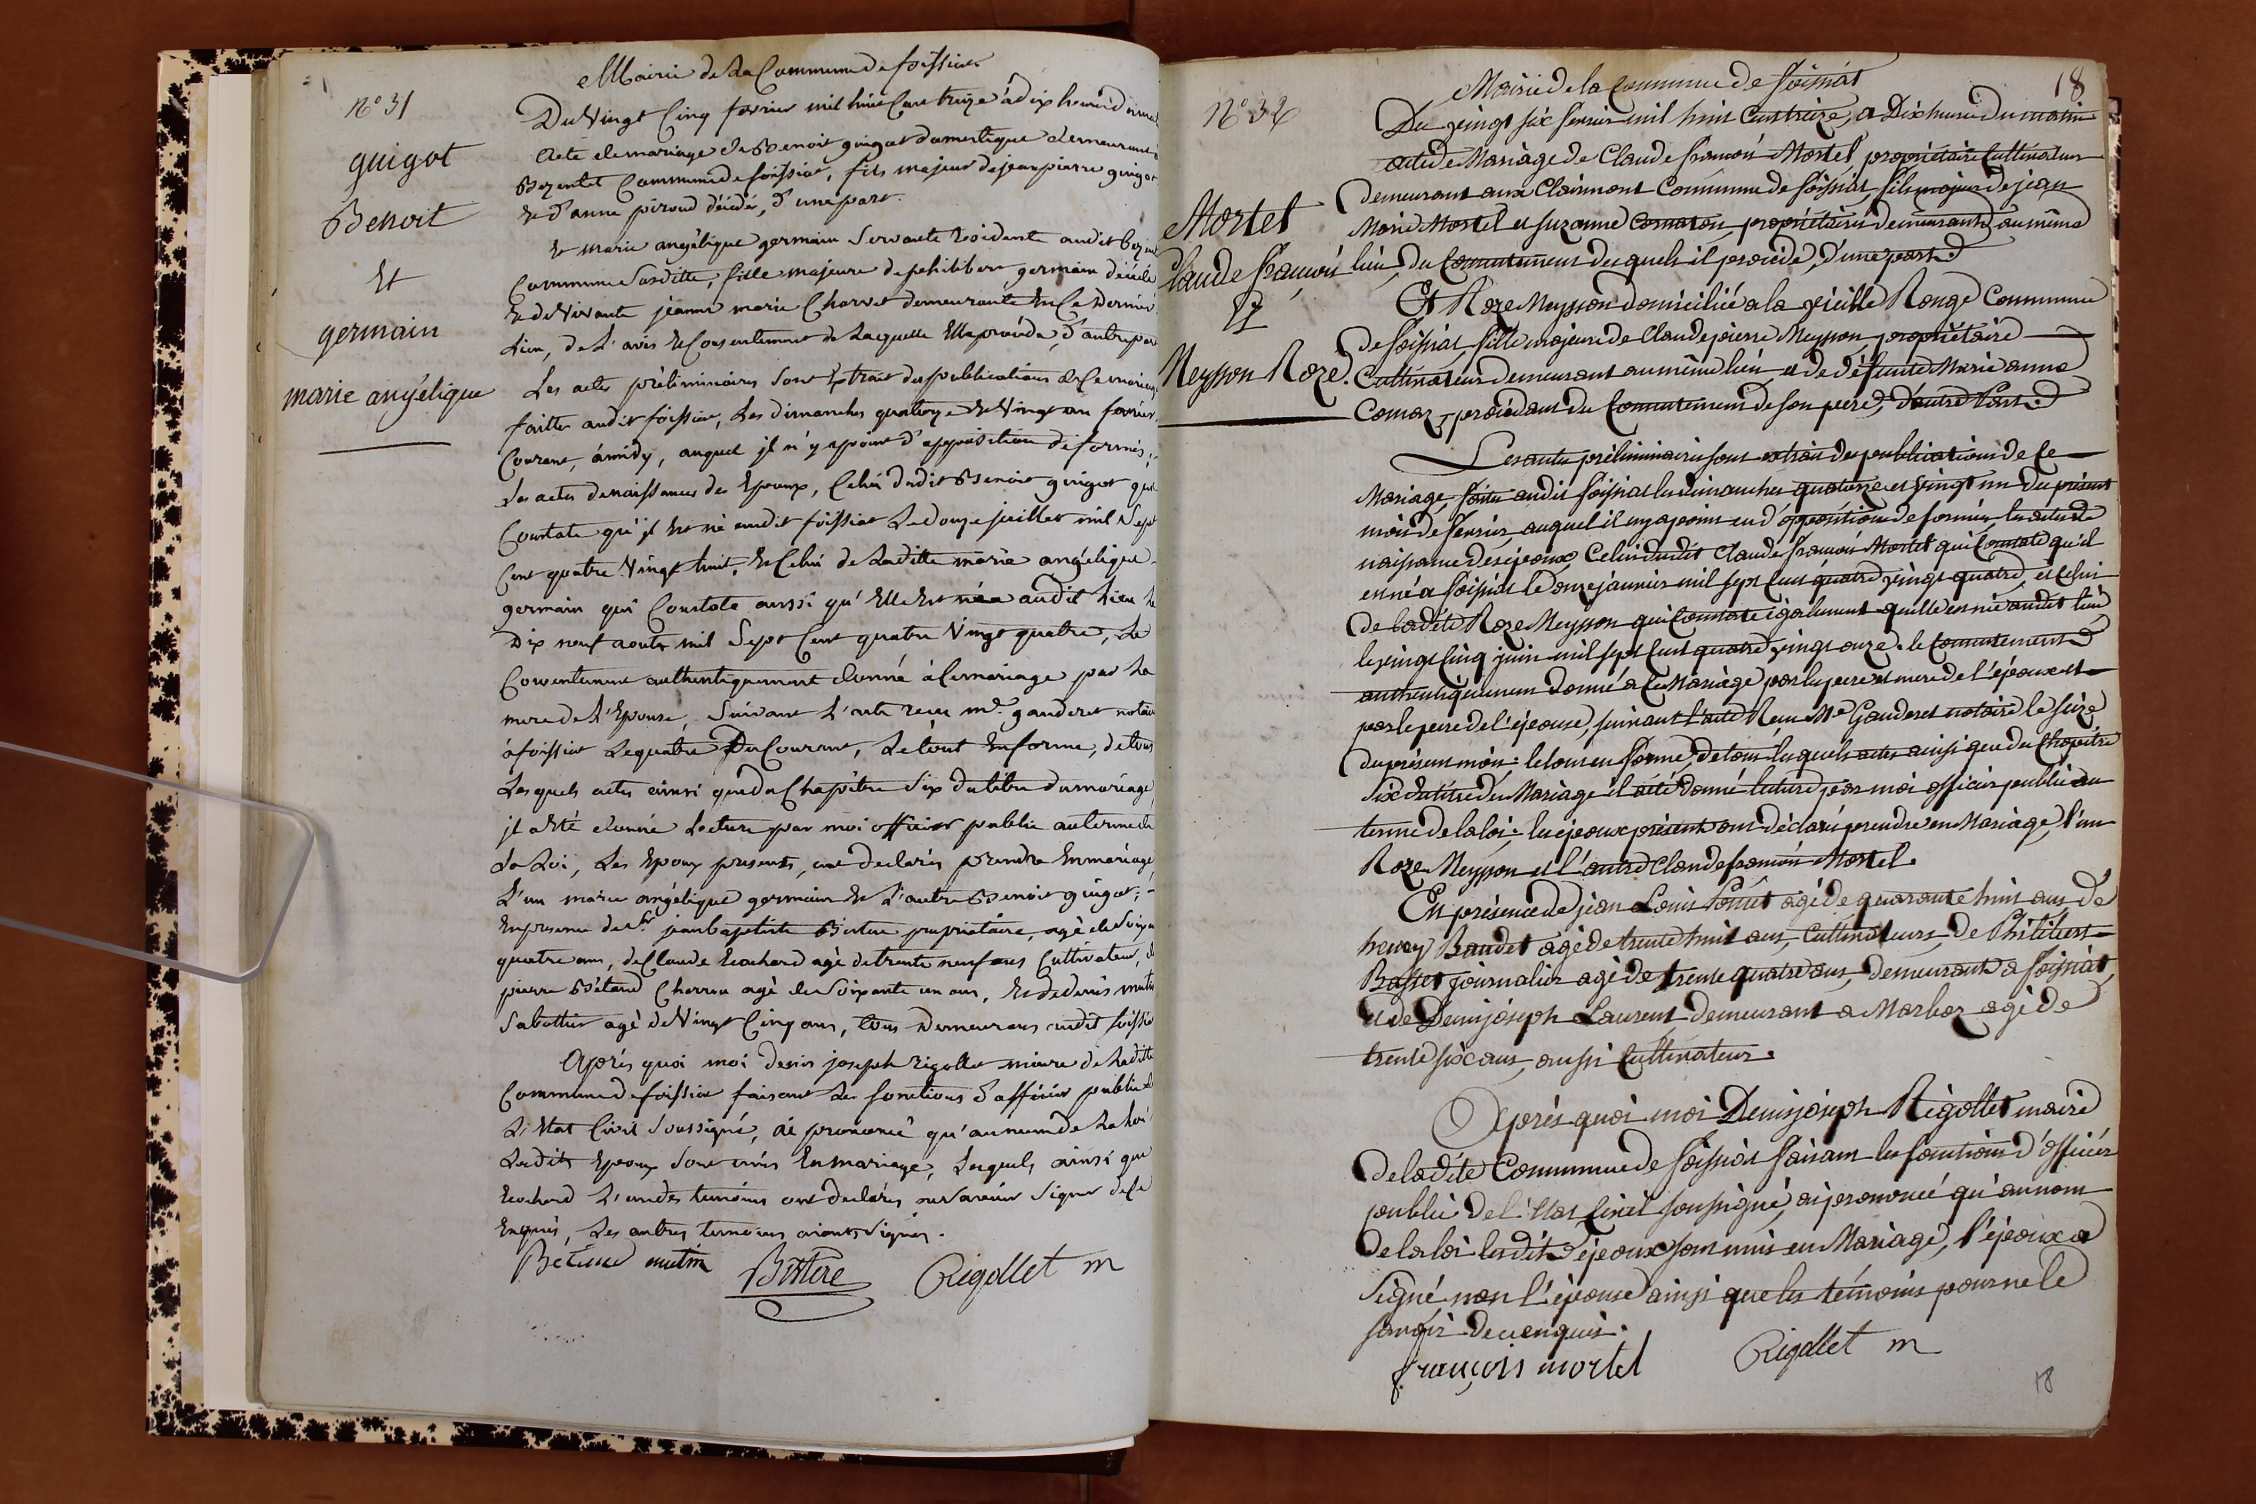 Mairie de La Commune de foissiat
N° 31
guigot
Benoit
Et
germain
marie angélique
Du Vingt Cinq fevrier mil huit Cent treize à dix heures du mat
Acte de mariage de Benoit guigot domestique demeurant
Bezentet Commune de foissiat, fils majeur de jean pierre guigot
Et d'anne piroud décédés, d'une part.
Et marie angélique germain Servante residente audit
Commune Susditte, fille majeure de philibert germain décédé
Et de Vivante jeanne marie Charvet demeurante En Ce dernier
Lieu, de L'avis Et Consentement de Laquelle Elle procéde, d'autre part
Les actes préliminaires Sont Extrait des publications de Ce mariage
faittes audit foissiat, Les dimanches quatorze Et Vingt un fevrier
Courant, à midy, auquel jl n'y a point d'opposition de formés;
Les actes de naissances des Epoux, Celui dudit Benoit guigot qui
Constate qu'jl Est né audit foissiat Le douze juillet mil Sept
Cent quatre Vingt huit, Et Celui de Laditte marie angélique
germain qui Constate aussi qu'Elle Est née audit Lieu Le
Dix neuf aoust mil Sept Cent quatre Vingt quatre, Le
Consentement authentiquement donné à Ce mariage par La
mere de L'Epouse, Suivant L'acte recu me. gauderet notaire
à foissiat Le quatre Du Courant, Le tout En forme, de tous
Les quels actes ainsi que du Chapitre Six du titre du mariage,
jl a Eté donné Lecture par moi officier public au terme de
La Loi, Les Epoux presents, ont declarés prendre En mariage
L'un marie angélique germain Et L'autre Benoit guigot;
En presence de Sr. jean baptiste Bistere propriétaire, agé de Soixante
quatre ans, de Claude Rochard agé de trente neuf ans Cultivateur, de
pierre Bétand Charron agé de Soixante un ans, Et de denis mutin
Sabottier agé de Vingt Cinq ans, tous Demeurans audit foissiat
Après quoi moi denis joseph rigollet maire de Laditte
Commune de foissiat faisant Les fonctions d'officier public de
L'Etat Civil Soussigné, ai prononcé qu'au nom de La Loi
Lesdits Epoux Sont unis En mariage, Lesquels ainsi que
Rochard L'un des temoins ont declarés ne Savoir Signer de Ce
Enquis, Les autres temoins aiants Signés.
mutin Bistere Rigollet m
18
Mairie de la Commune de Foissiat
N° 32
Mortel
Claude François
Et
Meysson Roze.
Du vingt six fevrier mil huit Cent treize, a Dix heures du matin
acte de Mariage de Claude françois Mortel propriétaire Cultivateur
demeurant aux Claimons Commune de foissiat, fils majeur de jean
Marie Mortel et Suzanne Comaton, propriétaires demeurants, au même
lieu, du Consentement desquels il procéde, d'une part.
Et Roze Meysson domiciliée a la vieille Ronge Commune
de foissiat, fille majeure de Claude pierre Meysson, propriétaire
Cultivateur demeurant au même lieu et de défunte Marie anne
Comaz, procédant du Consentement de son pere, d'autre Part.
Les actes préliminaires sont extrait des publications de Ce
Mariage, faites audit foissiat les dimanches quatorze et vingt un du présent
mois de fevrier, auquel il n'y a point eu d'opposition de formée, les actes de
naissance des époux, Celui dudit Claude françois Mortel qui Constate qu'il
est né a foissiat le onze janvier mil sept Cent quatre vingt quatre, et Celui
de ladite Roze Meysson qui Constate également quelle est née audit lieu
le vingt Cinq juin mil sept Cent quatre vingt onze. le Consentement
authentiquement donné a Ce Mariage par les pere et mere de l'époux et
par le pere de l'épouse, suivant l'acte Recu Me Gauderet notaire le seize
du présent mois. le tout en forme, de tous lesquels actes ainsi que du Chapitre
Six du titre du Mariage il a été donné lecture par moi officier public au
terme de la loi. les époux présents ont déclaré prendre en Mariage, l'un
Roze Meysson et l'autre Claude françois Mortel.
En présence de jean Louis Ponset agé de quarante huit ans de
henry Baudet agé de trente huit ans, Cultivateurs, de Philibert
Basset journalier agé de trente quatre ans, demeurants a foissiat,
et de Denis joseph Laurent demeurant a Marboz agé de
trente six ans, aussi Cultivateur.
Après quoi moi Denis joseph Rigollet maire
de ladite Commune de foissiat faisant les fonctions d'officier
public de l'Etat Civil soussigné, ai prononcé qu'au nom
de la loi lesdits époux sont unis en Mariage, l'époux a
Signé non l'épouse ainsi que les témoins pour ne le
savoir de ce enquis.
françois mortel Rigollet m
18